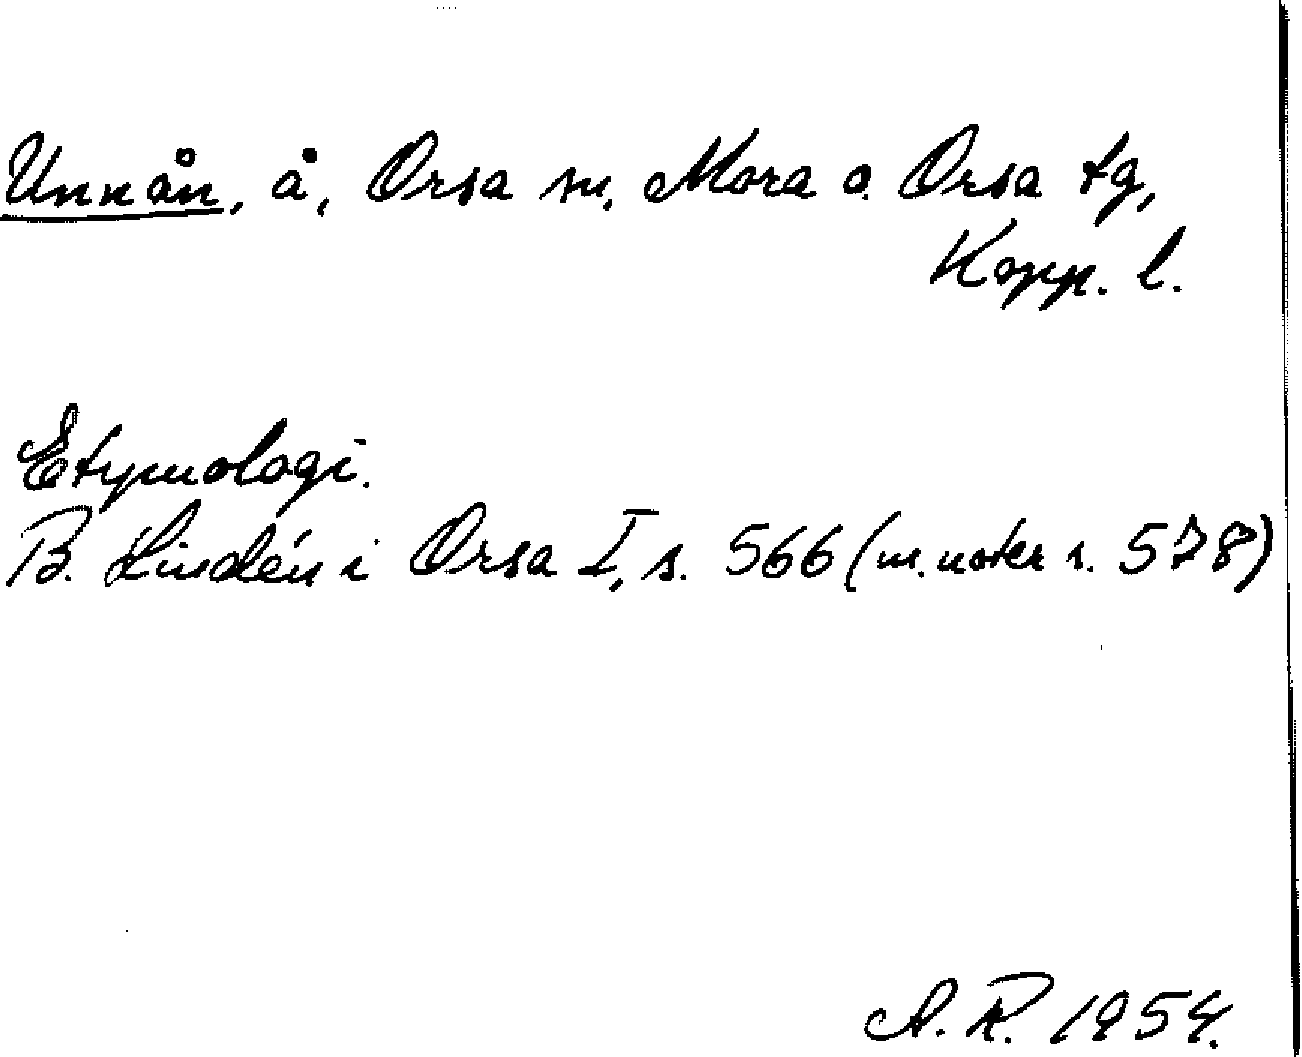 Unnån, å, Orsa sn, Mora o. Orsa tg,
Kopp. l.
Etymologi.
B. Lindén i Orsa I, s. 566 (m. noter s. 578)
A. R. 1954.